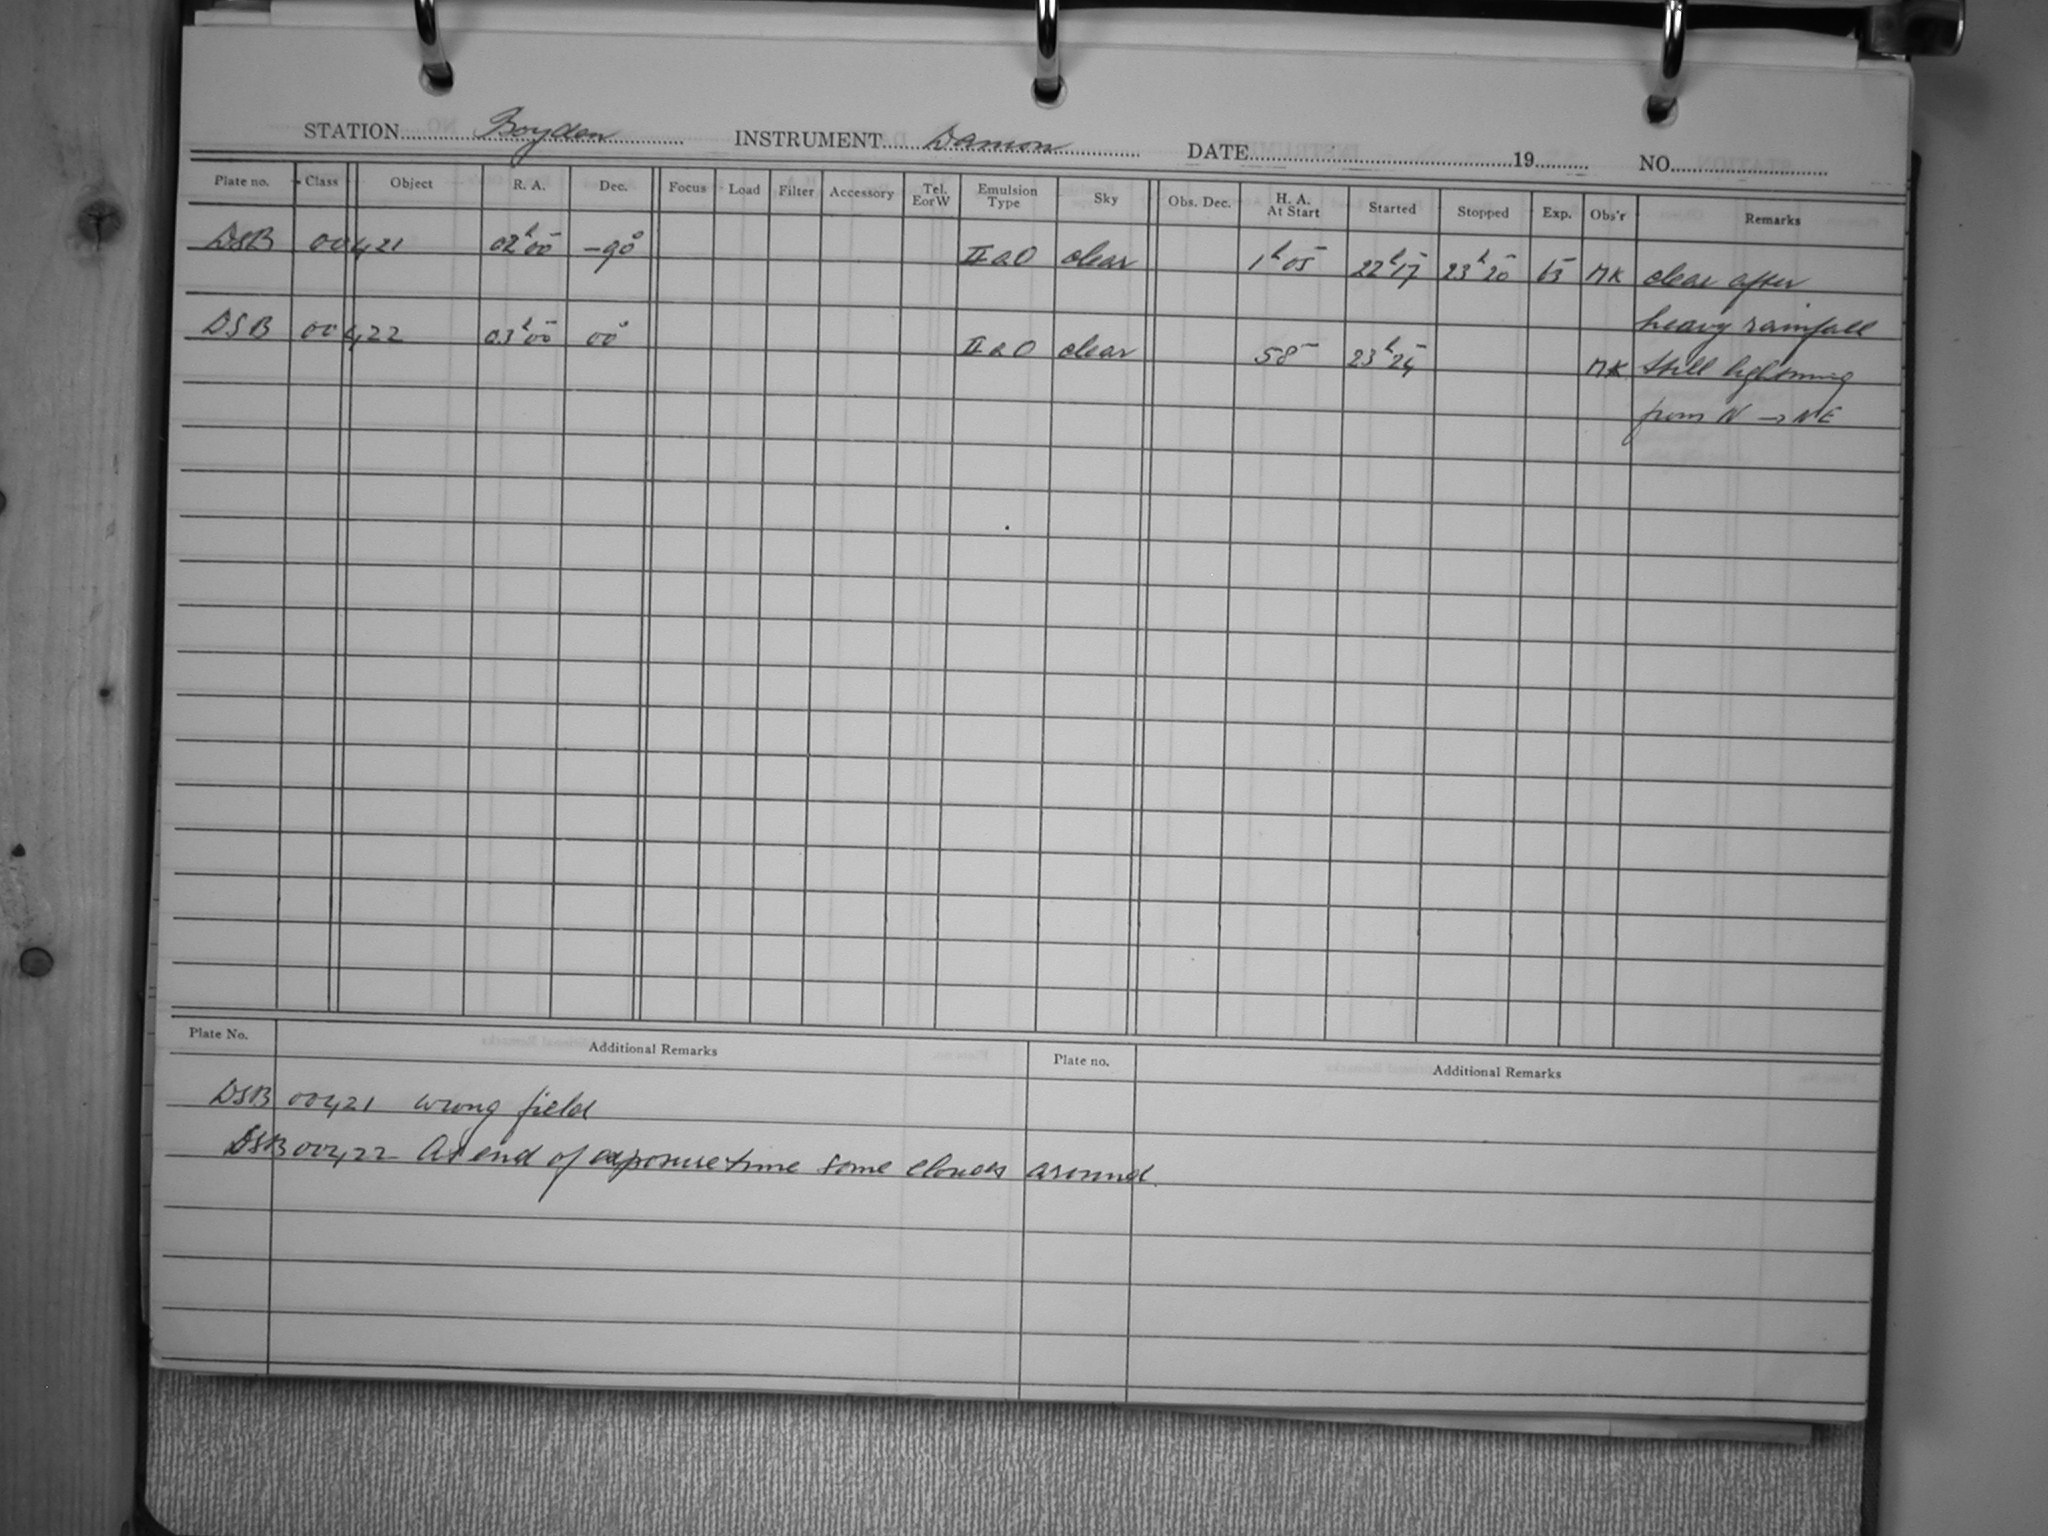 STATION Boyden INSTRUMENT Damon DATE 19 NO.
Plate no. Class Object R. A. Dec. Focus Load Filter Accessory Tel. EorW Emulsion Type Sky Obs. Dec. H. A. At Start Started Stopped Exp. Obs'r Remarks
DSB 00421 02h00m -90° IIaO clear 1h05m 22h17m 23h20m 63 MK clear after
heavy rainfall
DSB 00422 03h00m 00° IIaO clear 58m 23h24m MK still lightning
from N → NE
Plate No. Additional Remarks Plate no. Additional Remarks
DSB 00421 wrong field
DSB 00422 At end of exposure time some clouds around.